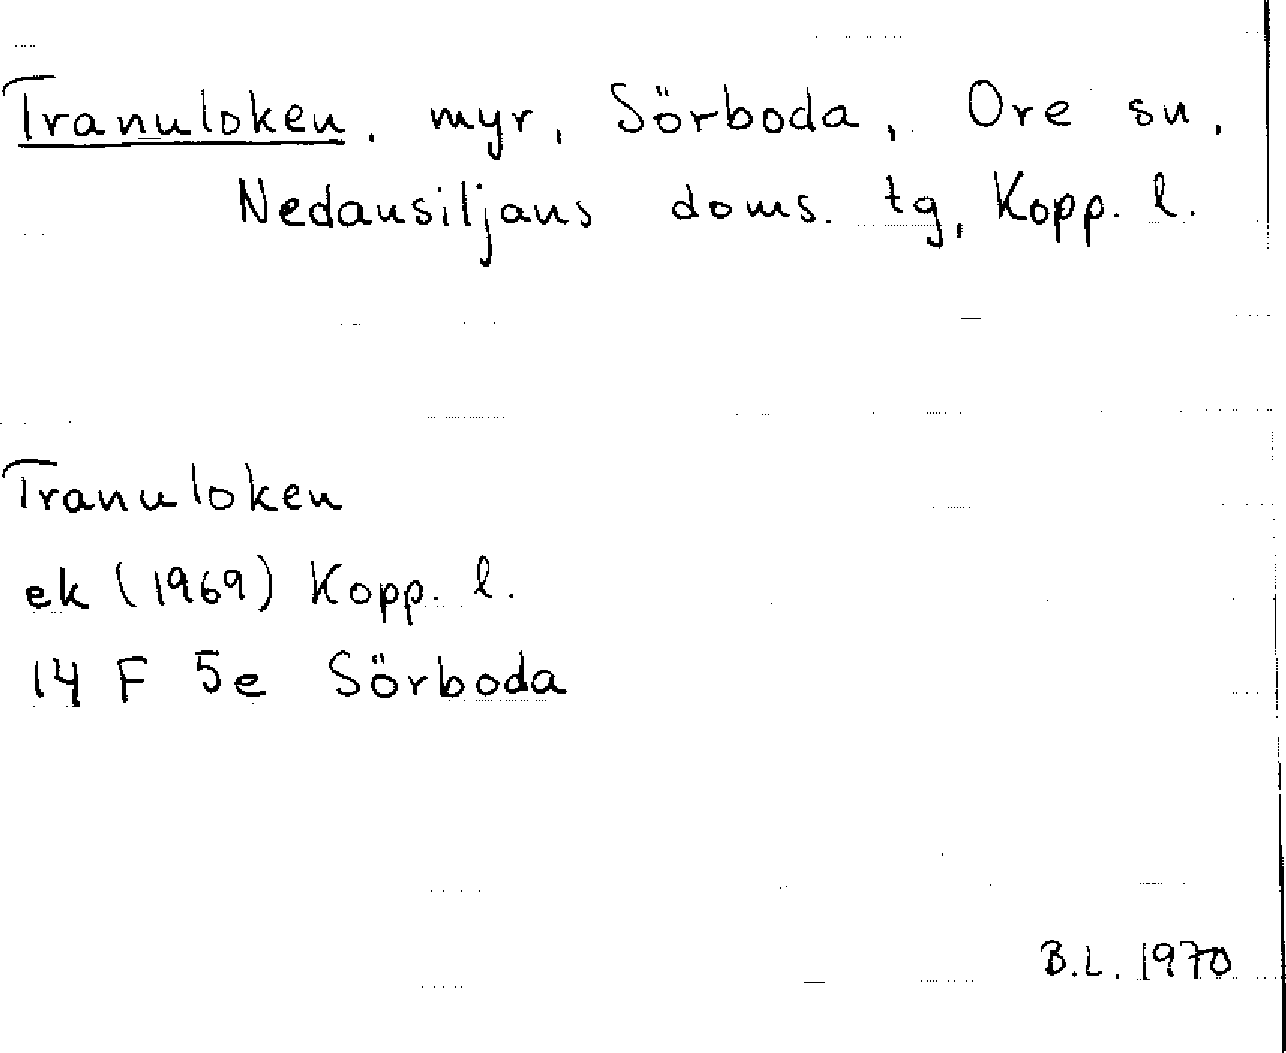 Tranuloken, myr, Sörboda, Ore sn,
Nedansiljans doms. tg, Kopp. l.
Tranuloken
ek (1969) Kopp. l.
14 F 5e Sörboda
B.L. 1970